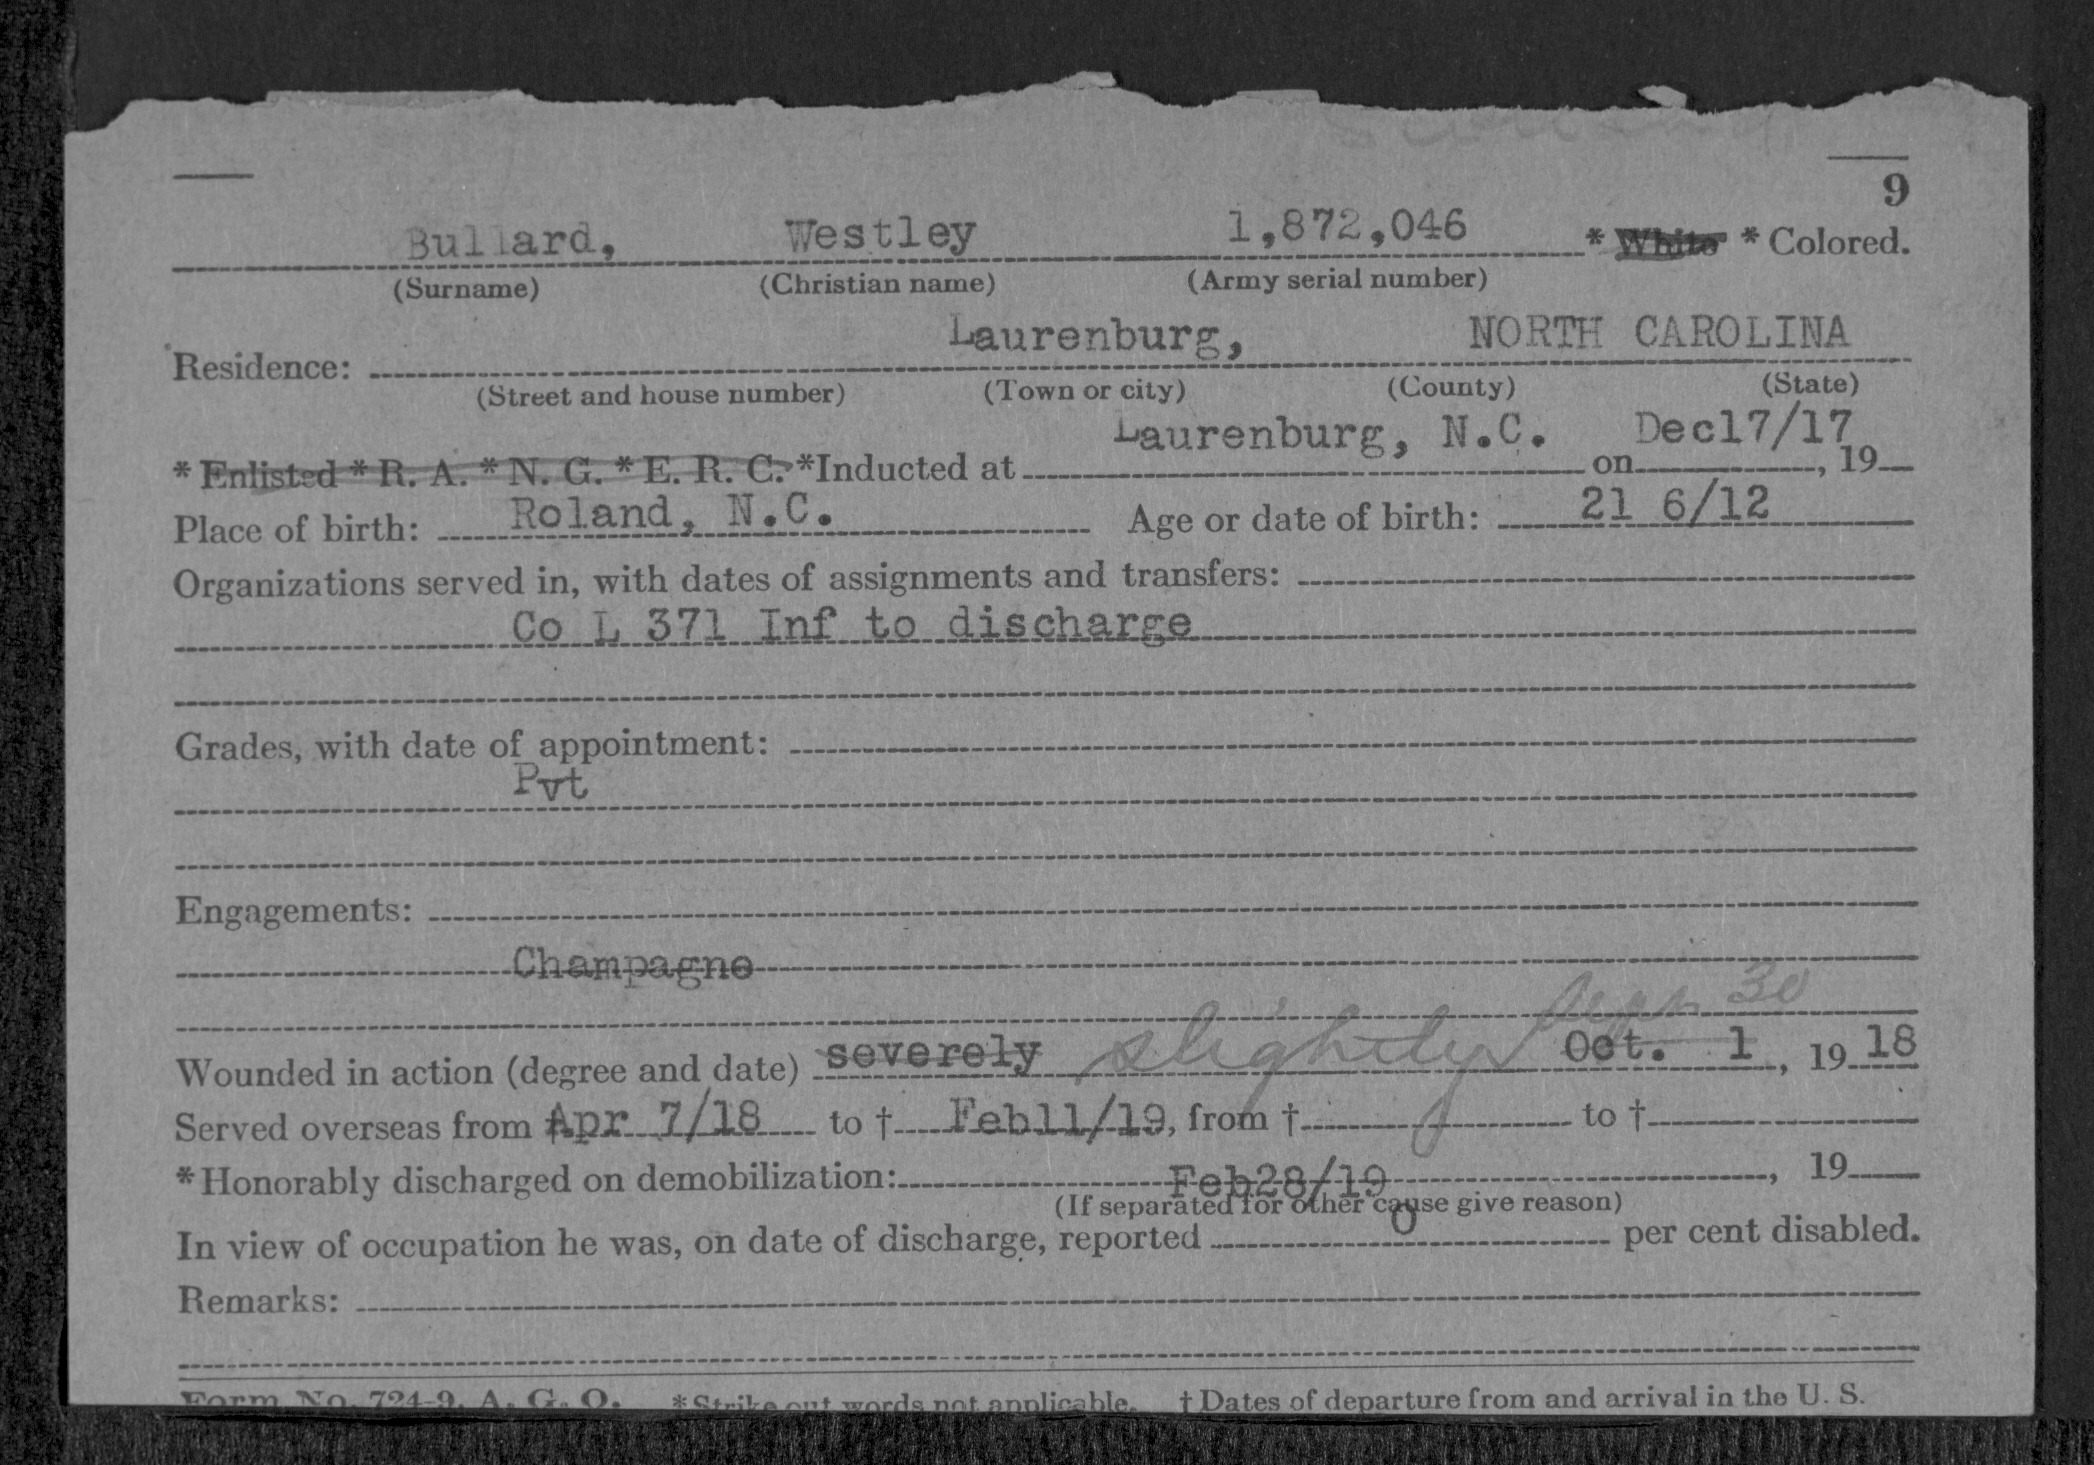 9
Bullard, Westley 1,872,046 * White * Colored.
(Surname) (Christian name) (Army serial number)
Laurenburg, NORTH CAROLINA
Residence:
(Street and house number) (Town or city) (County) (State)
Laurenburg, N.C. Dec17/17
* Enlisted * R. A. * N. G. * E. R. C. *Inducted at on , 19
Place of birth: Roland, N.C. Age or date of birth: 21 6/12
Organizations served in, with dates of assignments and transfers:
Co L 371 Inf to discharge
Grades, with date of appointment:
Pvt
Engagements:
Champagne
30
Wounded in action (degree and date) severely slightly Oct. 1, 19 18
Served overseas from Apr 7/18 to † Feb11/19, from † to †
*Honorably discharged on demobilization: Feb28/19 , 19
(If separated for other cause give reason)
In view of occupation he was, on date of discharge, reported 0 per cent disabled.
Remarks:
Form No. 724-9, A. G. O. *Strike out words not applicable. † Dates of departure from and arrival in the U. S.